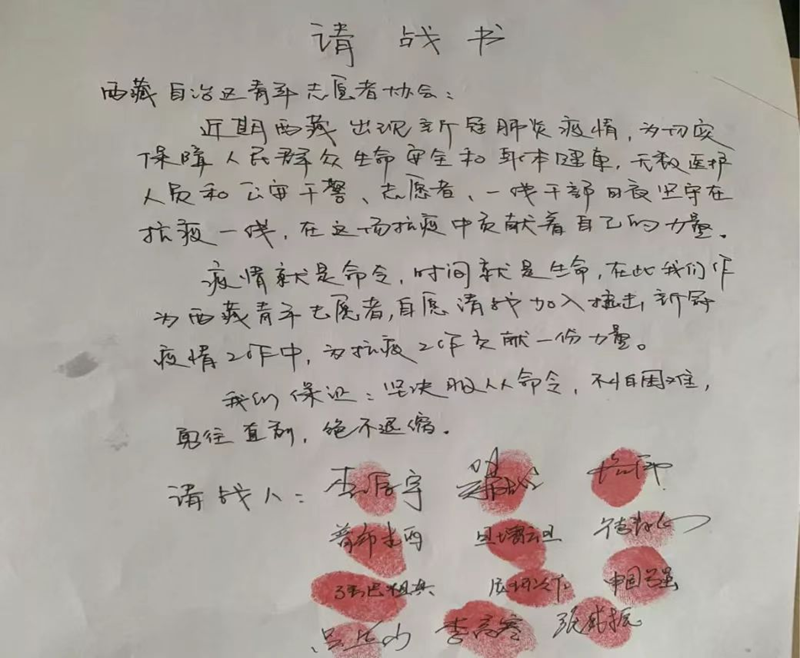 请战书
西藏自治区青年志愿者协会：
近期西藏出现新冠肺炎疫情，为切实
保障人民群众生命安全和身体健康，无数医护
人员和公安干警、志愿者、一线干部日夜坚守在
抗疫一线，在这场抗疫中贡献着自己的力量。
疫情就是命令，时间就是生命，在此我们作
为西藏青年志愿者，自愿请战加入抗击新冠
疫情工作中，为抗疫工作贡献一份力量。
我们保证：坚决服从命令，不怕困难，
勇往直前，绝不退缩。
请战人：
普布